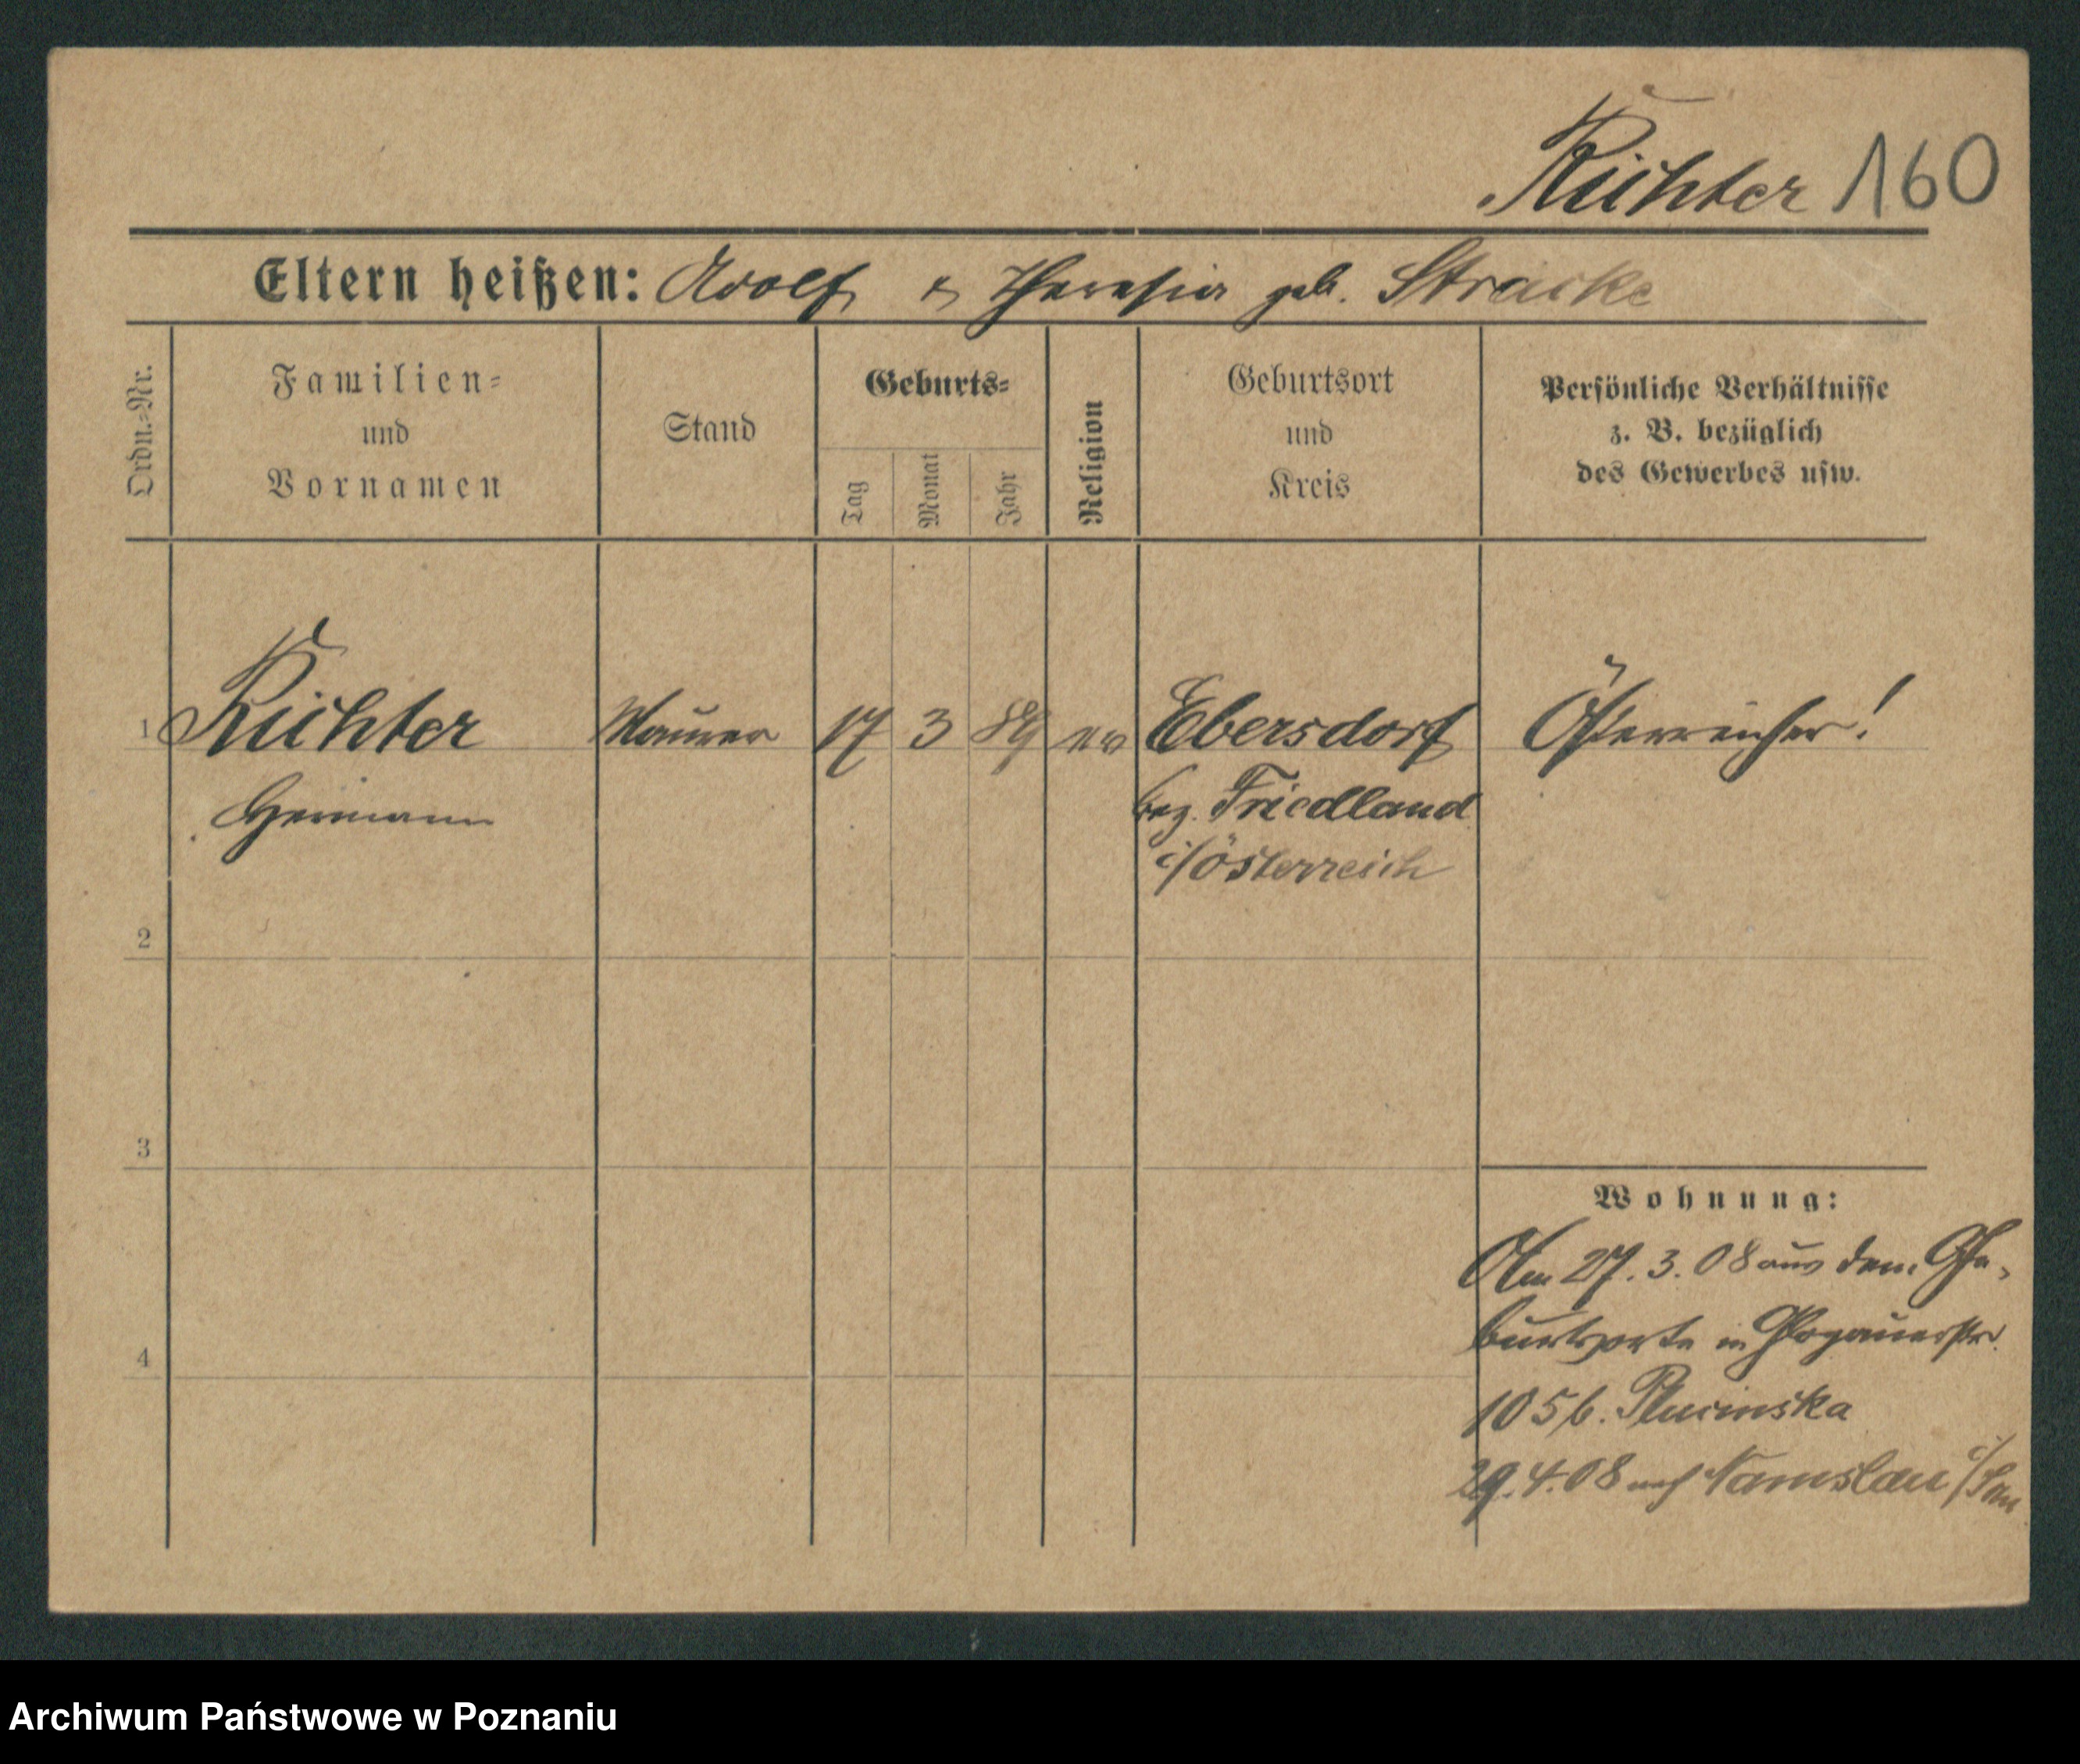 Richter 160
Eltern heißen: Adolf & Theresia geb. Stracke
Ordn.=Nr.
Familien=
und
Vornamen
Stand
Geburts=
Tag
Monat
Jahr
Religion
Geburtsort
und
Kreis
Persönliche Verhältnisse
z. B. bezüglich
des Gewerbes usw.
1 Richter Maurer 17 3 89 ev Ebersdorf Österreicher!
Hermann bez. Friedland
i/Österreich
2
3
Wohnung:
Am 27.3.08 aus dem Ge-
burtsorte in Glogauerstr.
105 b. Plucinska
4
29.4.08 nach Namslau
Archiwum Państwowe w Poznaniu